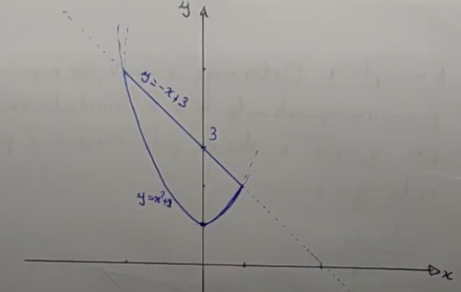 y
y=-x+3
3
y=x²+1
x